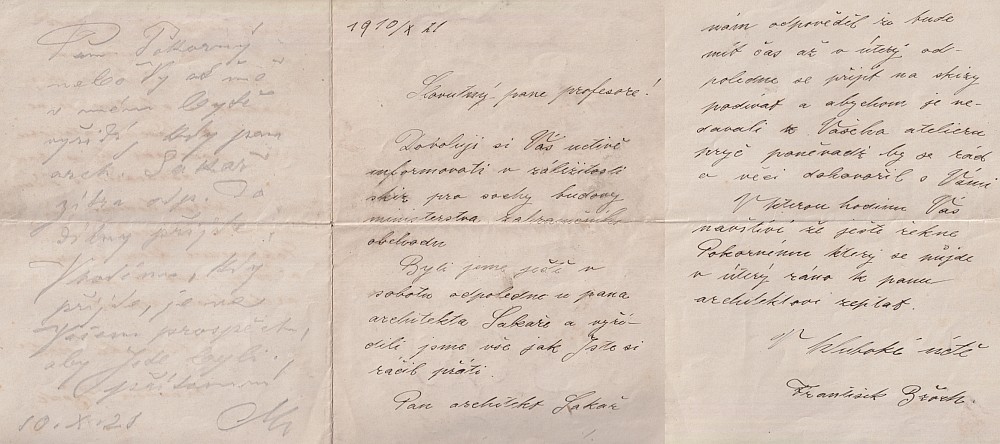 Pan Pokorný
nebo Vy ať
v mém bytě
vyřídí, kdy pan
arch. Sakař
zítra odp. do
dílny přijde.
Vhodíme, kdy
přijde, je na
Vašem prospěch,
aby Jste byli
přítomni
10.X.21
1910/X 21
Slovutný pane profesore!
Dovoluji si Vás uctivě
informovati v záležitosti
skiz pro sochy budovy
ministerstva zahraničního
obchodu
Byli jsme ještě v
sobotu odpoledne u pana
architekta Sakaře a vyří-
dili jsme vše jak Jste si
ráčil přáti.
Pan architekt Sakař
nám odpověděl že bude
mít čas až v úterý od-
poledne se přijít na skizy
podívat a abychom je ne-
dávali z Vašeho atelieru
pryč poněvadž by se rád
o věci dohovořil s Vámi
V kterou hodinu Vás
navštíví že ještě řekne
Pokornému který se půjde
v úterý ráno k panu
architektovi zeptat.
V hluboké úctě
František